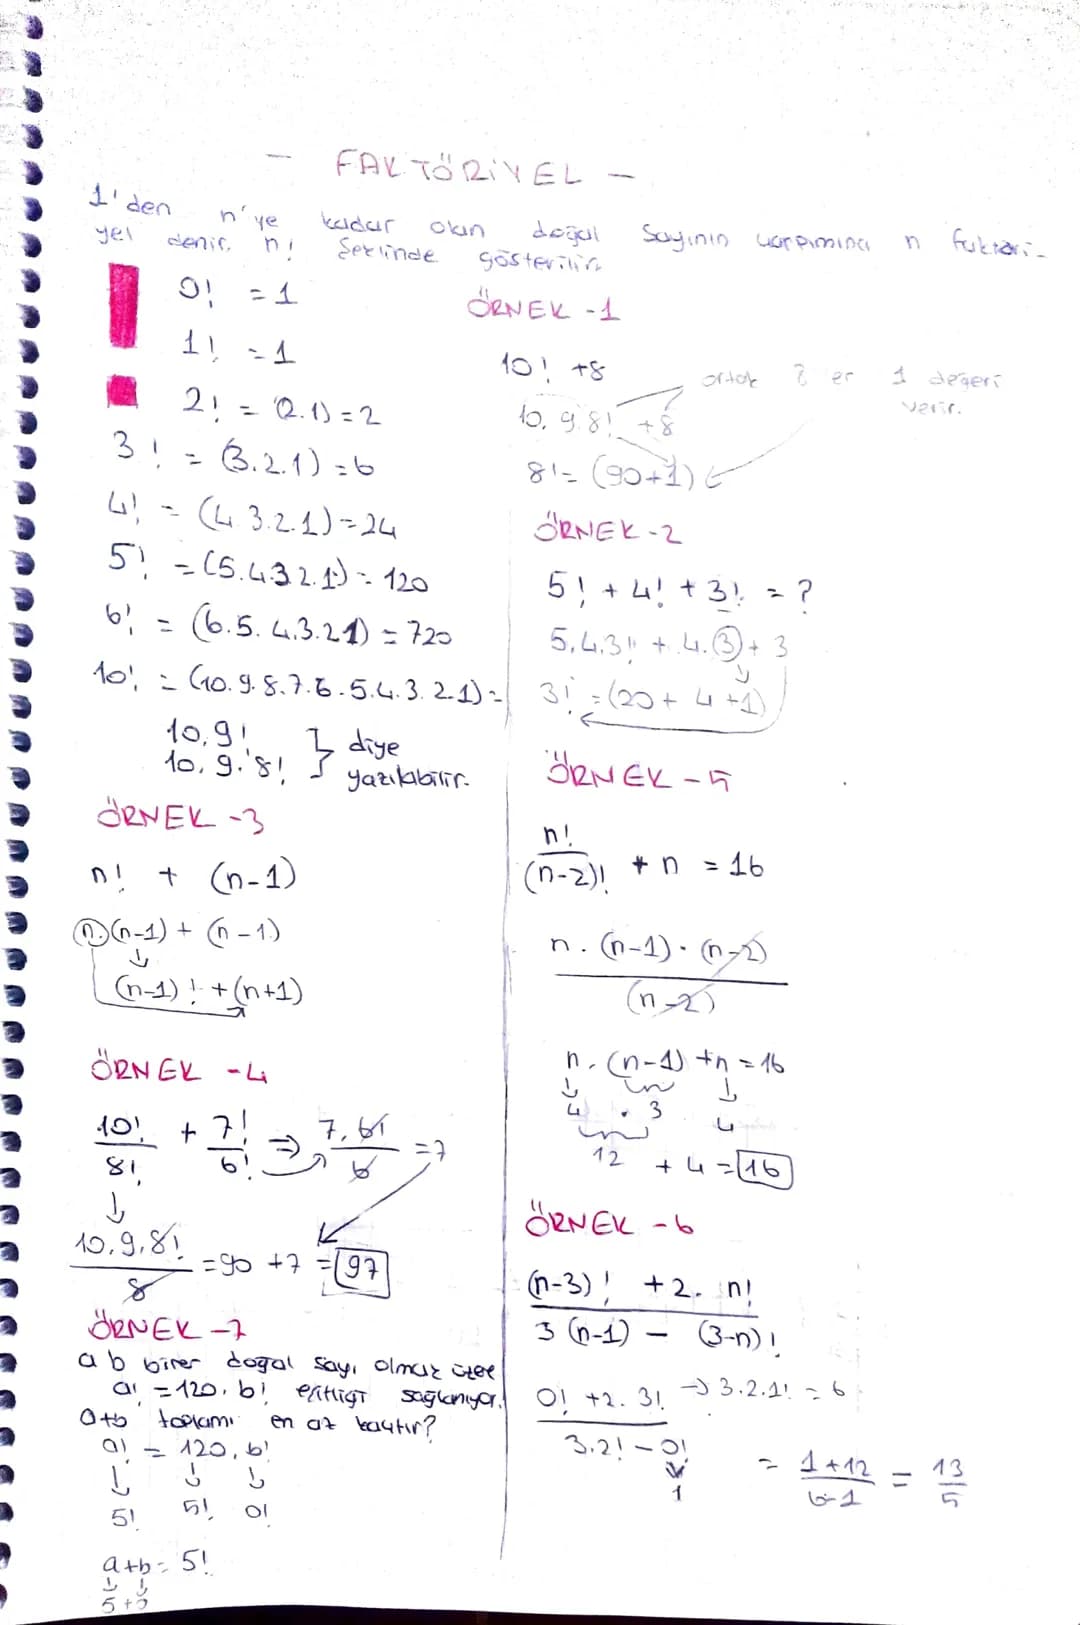 - FAKTÖRİYEL -
1'den n'ye kadar olan doğal sayının çarpımına n faktöri-
yel denir. n! Şeklinde gösterilir.
0! = 1
1! = 1
2! = (2.1) = 2
3! = (3.2.1) = 6
4! = (4.3.2.1) = 24
5! = (5.4.3.2.1) = 120
6! = (6.5.4.3.2.1) = 720
10! = (10.9.8.7.6.5.4.3.2.1) =
10.9!
10.9.8! } diye yazılabilir.
ÖRNEK -1
10! +8
10.9.8! +8
ortak er 1 değeri
verir.
8! = (90+1)
ÖRNEK -2
5! + 4! + 3! = ?
5.4.3! + 4.3 + 3
3! = (20 + 4 +1)
ÖRNEK -3
n! + (n-1)
n.(n-1) + (n-1)
(n-1)! + (n+1)
ÖRNEK -4
10!/8! + 7!/6! ⇒ 7.6!/6 = 7
10.9.8!/8 = 90 +7 = 97
ÖRNEK -5
n!/(n-2)! + n = 16
n.(n-1).(n-2)
(n-2)
n.(n-1) +n = 16
4 . 3 4
12 + 4 = 16
ÖRNEK -6
(n-3)! +2. n!
3(n-1) - (3-n)!
0! +2. 3! → 3.2.1! = 6
3.2! - 0!
1
= 1+12/6-1 = 13/5
ÖRNEK -7
a b birer doğal sayı olmak üzere
a! = 120. b! eşitliği sağlanıyor.
a+b toplamı en az kaçtır?
a! = 120. b!
5! 5! 0!
a+b = 5!
5+0